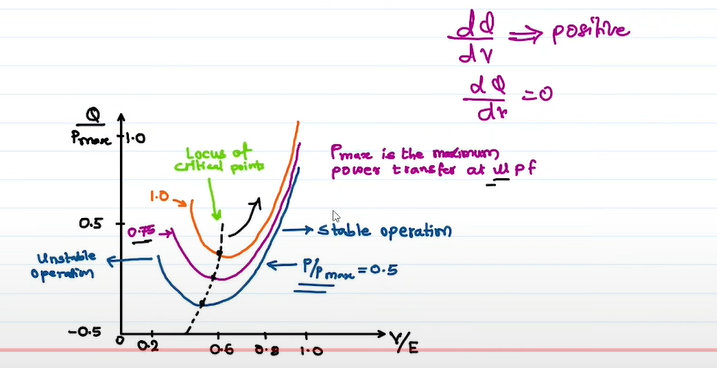 dQ/dV ⇒ positive
dQ/dv = 0
Q/Pmax
1.0
0.5
-0.5
Locus of
critical points
Pmax is the maximum
power transfer at upf
1.0
0.75
Unstable
operation
stable operation
P/Pmax = 0.5
0 0.2 0.6 0.8 1.0
V/E